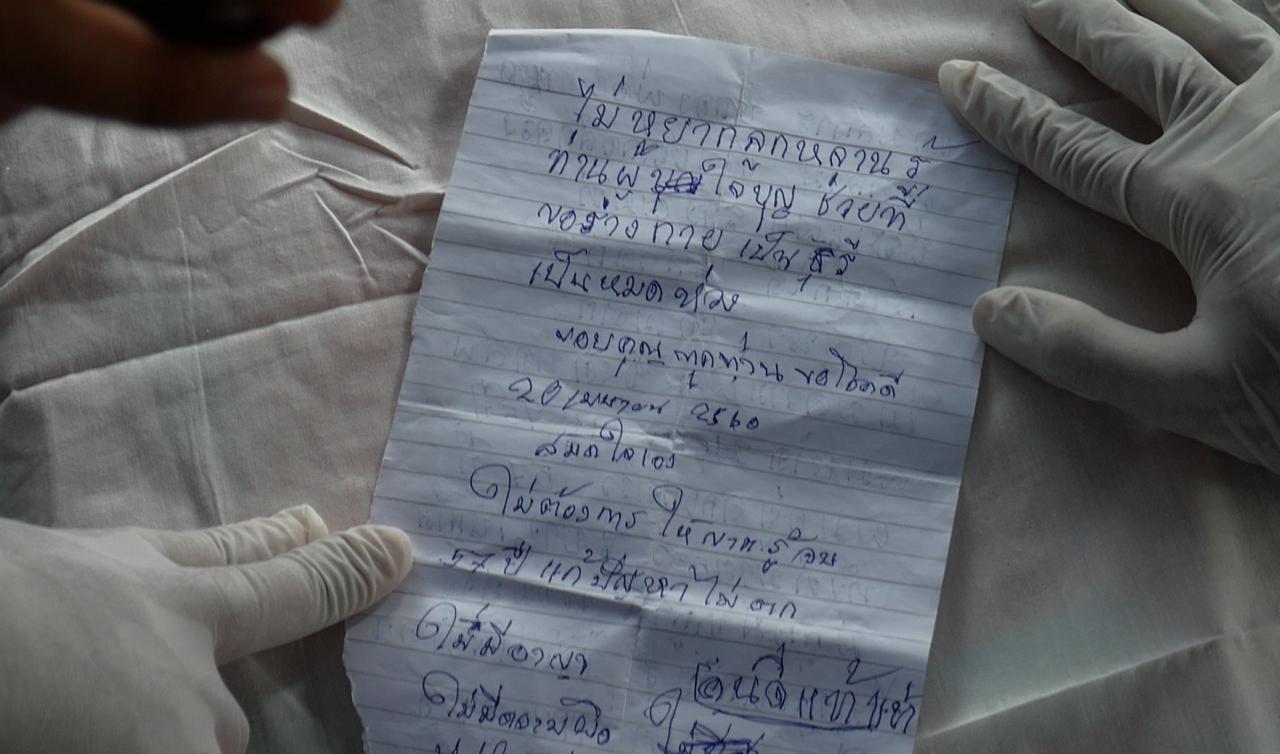 ไม่หยากลูกหลานรู้
ท่านผู้ใจ้บุญ ช่วยที่
ขอร่างกาย เป็น
เป็นหมดห่วง
ขอบคุณ ทุกท่าน ขอโชคดี
20 เมษายน 2560
สมดใจเอง
ไม่ต้องการ ให้ญาต รู้
57 ปี แก้ปัญหา ไม่ตก
ไม่มีอาญา
ไม่มีความผิด